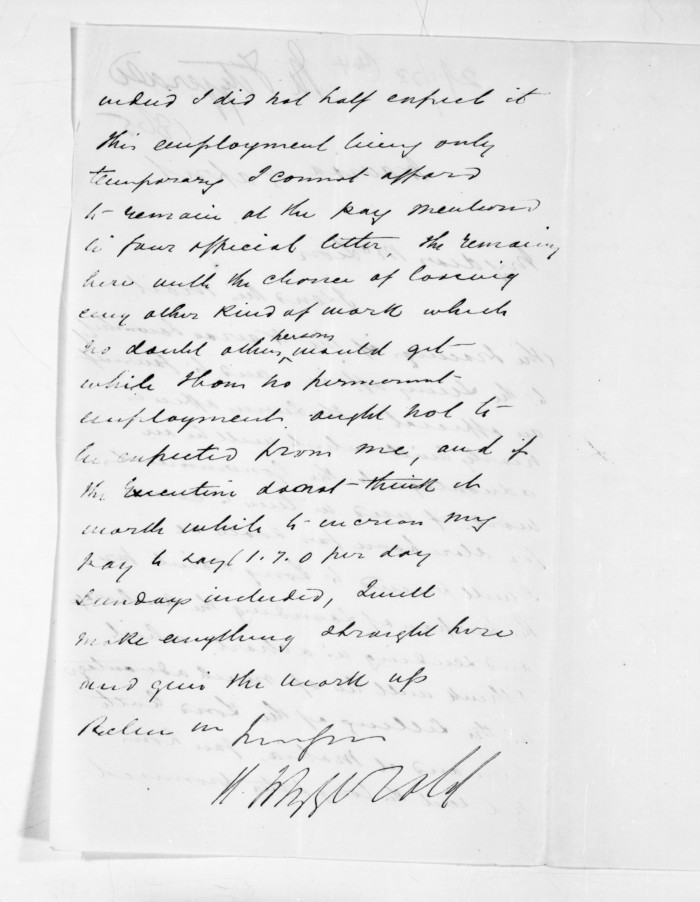 indeed I did not half expect it
this employment being only
temporary I cannot afford
to remain at the pay mentioned
in your official letter, the remaing
here with the chance of loosing
any other kind of work which
no doubt other persons would get
while I have no permanent
employment ought not to
be expected from me, and if
the Executive do not think it
worth while to increase my
pay to say 1.7.0 per day
Sundays included, I will
make anything straight here
and give the work up
Believe me
H. Fitzgerald